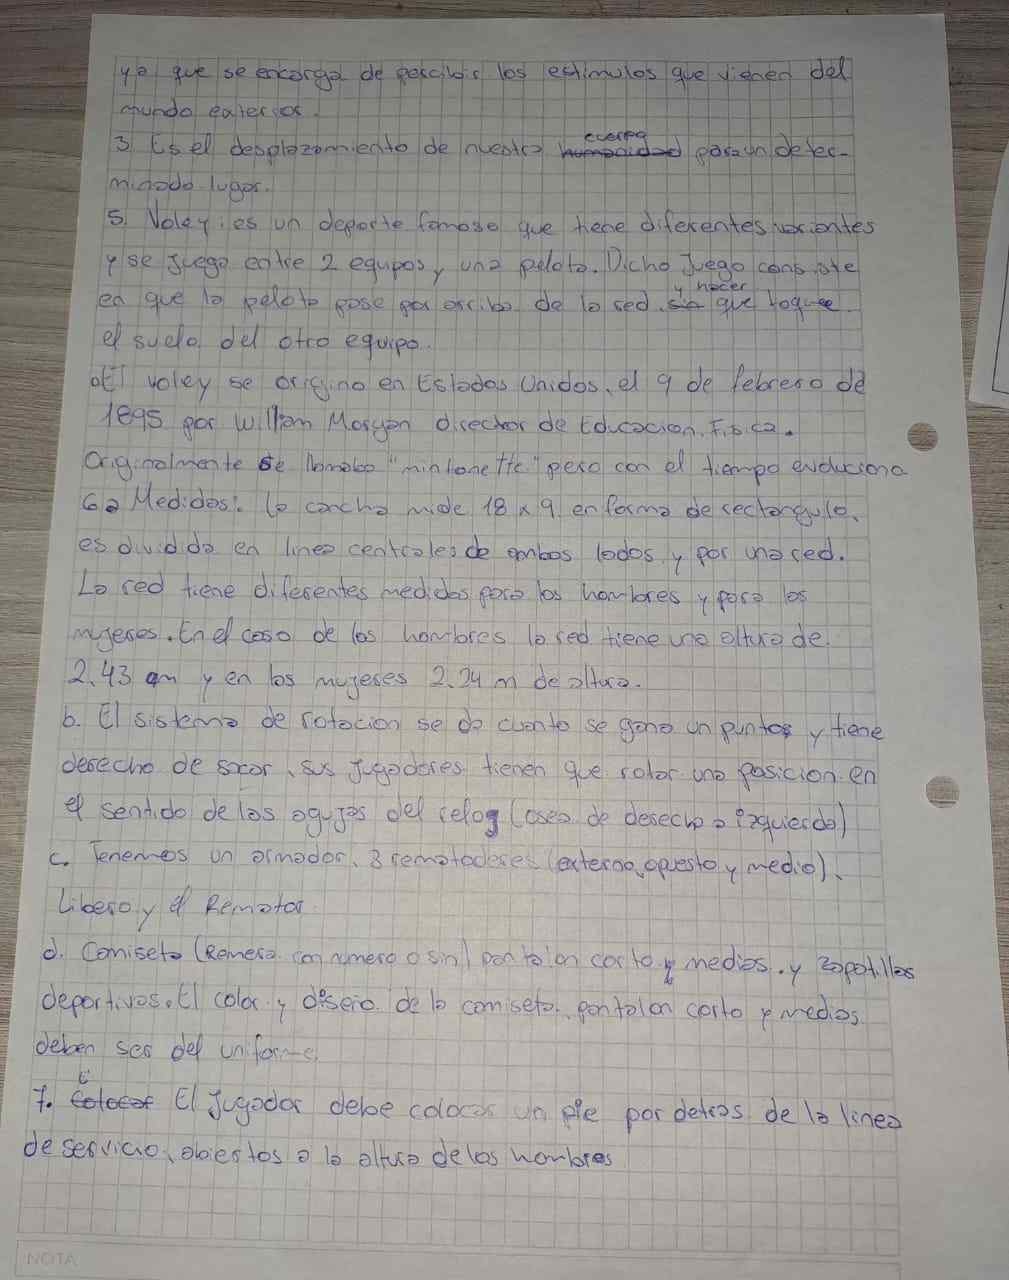 ya que se encarga de percibir los estimulos que vienen del
mundo exterior.
3. Es el desplazamiento de nuestra humanidad cuerpo para un deter-
minado lugar.
5. Voley: es un deporte famoso que tiene diferentes variantes
y se juega entre 2 equipos y una pelota. Dicho juego consiste
en que la pelota pase por arriba de la red. sin y hacer que toque
el suelo del otro equipo.
El voley se origino en Estados Unidos, el 9 de febrero de
1895 por William Morgan director de Educacion Fisica.
Originalmente se llamaba "mintonette" pero con el tiempo evoluciona
6a Medidas: la cancha mide 18 x 9 en forma de rectangulo,
es dividida en linea centrales de ambos lados y por una red.
La red tiene diferentes medidas para los hombres y para las
mujeres. En el caso de los hombres la red tiene una altura de
2.43 m y en las mujeres 2.24 m de altura.
b. El sistema de rotacion se da cuanto se gana un puntos y tiene
derecho de sacar, sus jugadores tienen que rotar una posicion en
el sentido de las agujas del reloj (osea de derecha a izquierda)
c. Tenemos un armador, 3 rematadores (externo, opuesto y medio),
Libero y el Remator
d. Camiseta (Remera con numero o sin) pantalon corto y medias, y zapatillas
deportivas. El color y diseño de la camiseta, pantalon corto y medias
deben ser del uniforme.
7. Colocar C El Jugador debe colocar un pie por detras de la linea
de servicio, abiertos a la altura de los hombres
NOTA